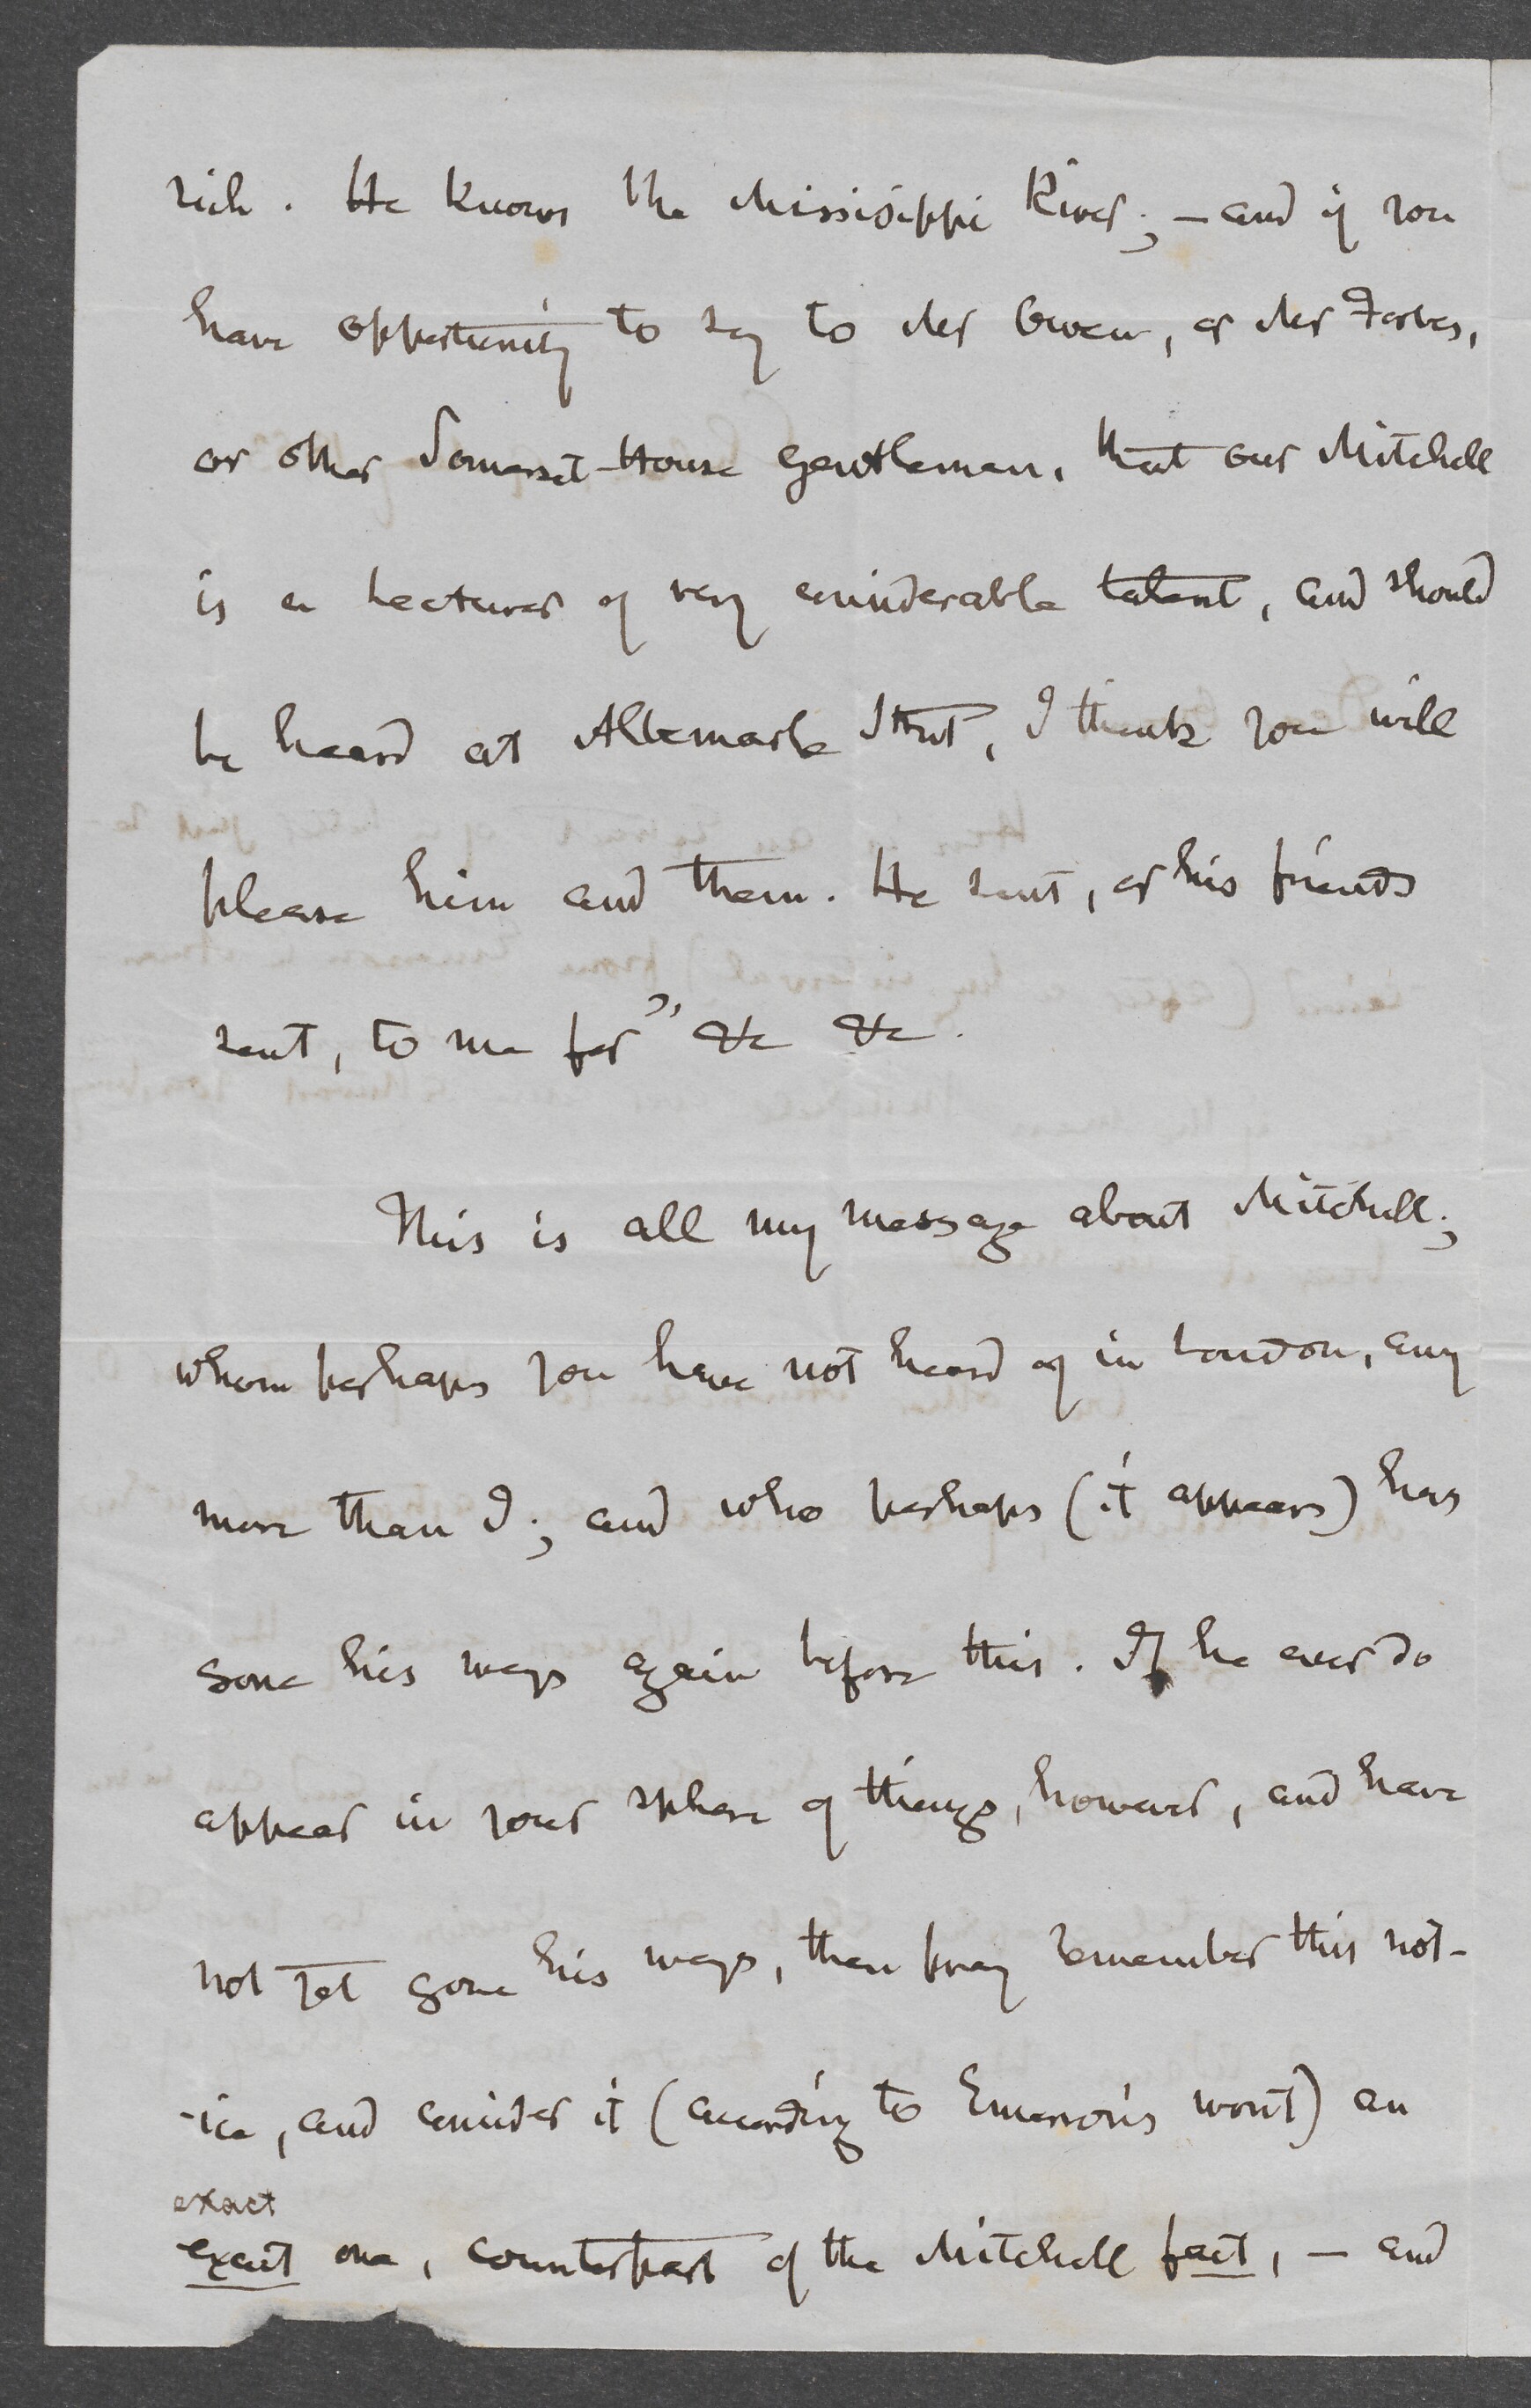 rich. He knows the Missisippi River; – and if you
have opportunity to say to Mr Owen, or Mr Forbes,
or other Somerset-House gentleman, that our Mitchell
is a Lecturer of very considerable talent, and should
be heard at Albemarle Street, I think you will
please him and them. He sent, or his friends
sent, to me for" &c &c.
This is all my message about Mitchell;
whom perhaps you have not heard of in London, any
more than I; and who perhaps (it appears) has
gone his ways again before this. If he ever do
appear in your sphere of things, however, and have
not yet gone his ways, then pray remember this not-
-ice, and consider it (according to Emerson's wont) an
exact
exact one, counterpart of the Mitchell fact, – and